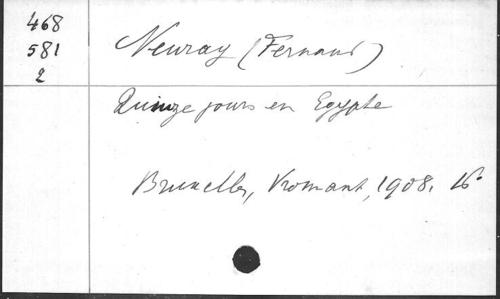 468
581
2
Neuray (Fernand)
Quinze jours en Egypte
Bruxelles, Vromant, 1908. 16°